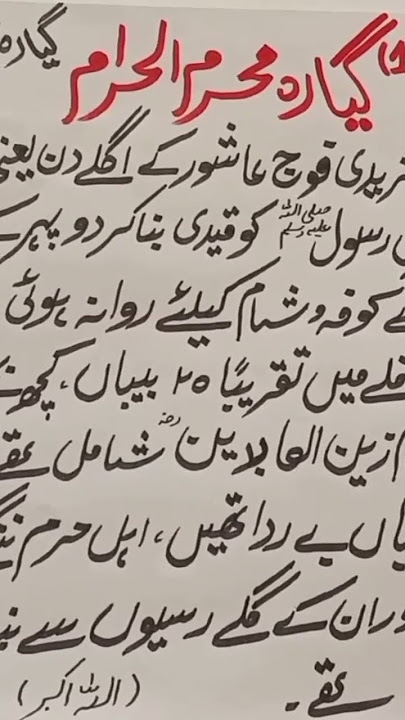 (1) گیارہ محرم الحرام گیارہ
یزیدی فوج عاشور کے اگلے دن یعنی
رسول صلی اللہ علیہ وسلم کو قیدی بنا کر دوپہر کے
کوفہ و شام کیلئے روانہ ہوئی
قافلے میں تقریباً ۲۵ بیبیاں، کچھ
زین العابدین رضہ شامل تھے
بے ردا تھیں، اہل حرم
اور ان کے گلے رسیوں سے
تھے۔ (اللہ اکبر)